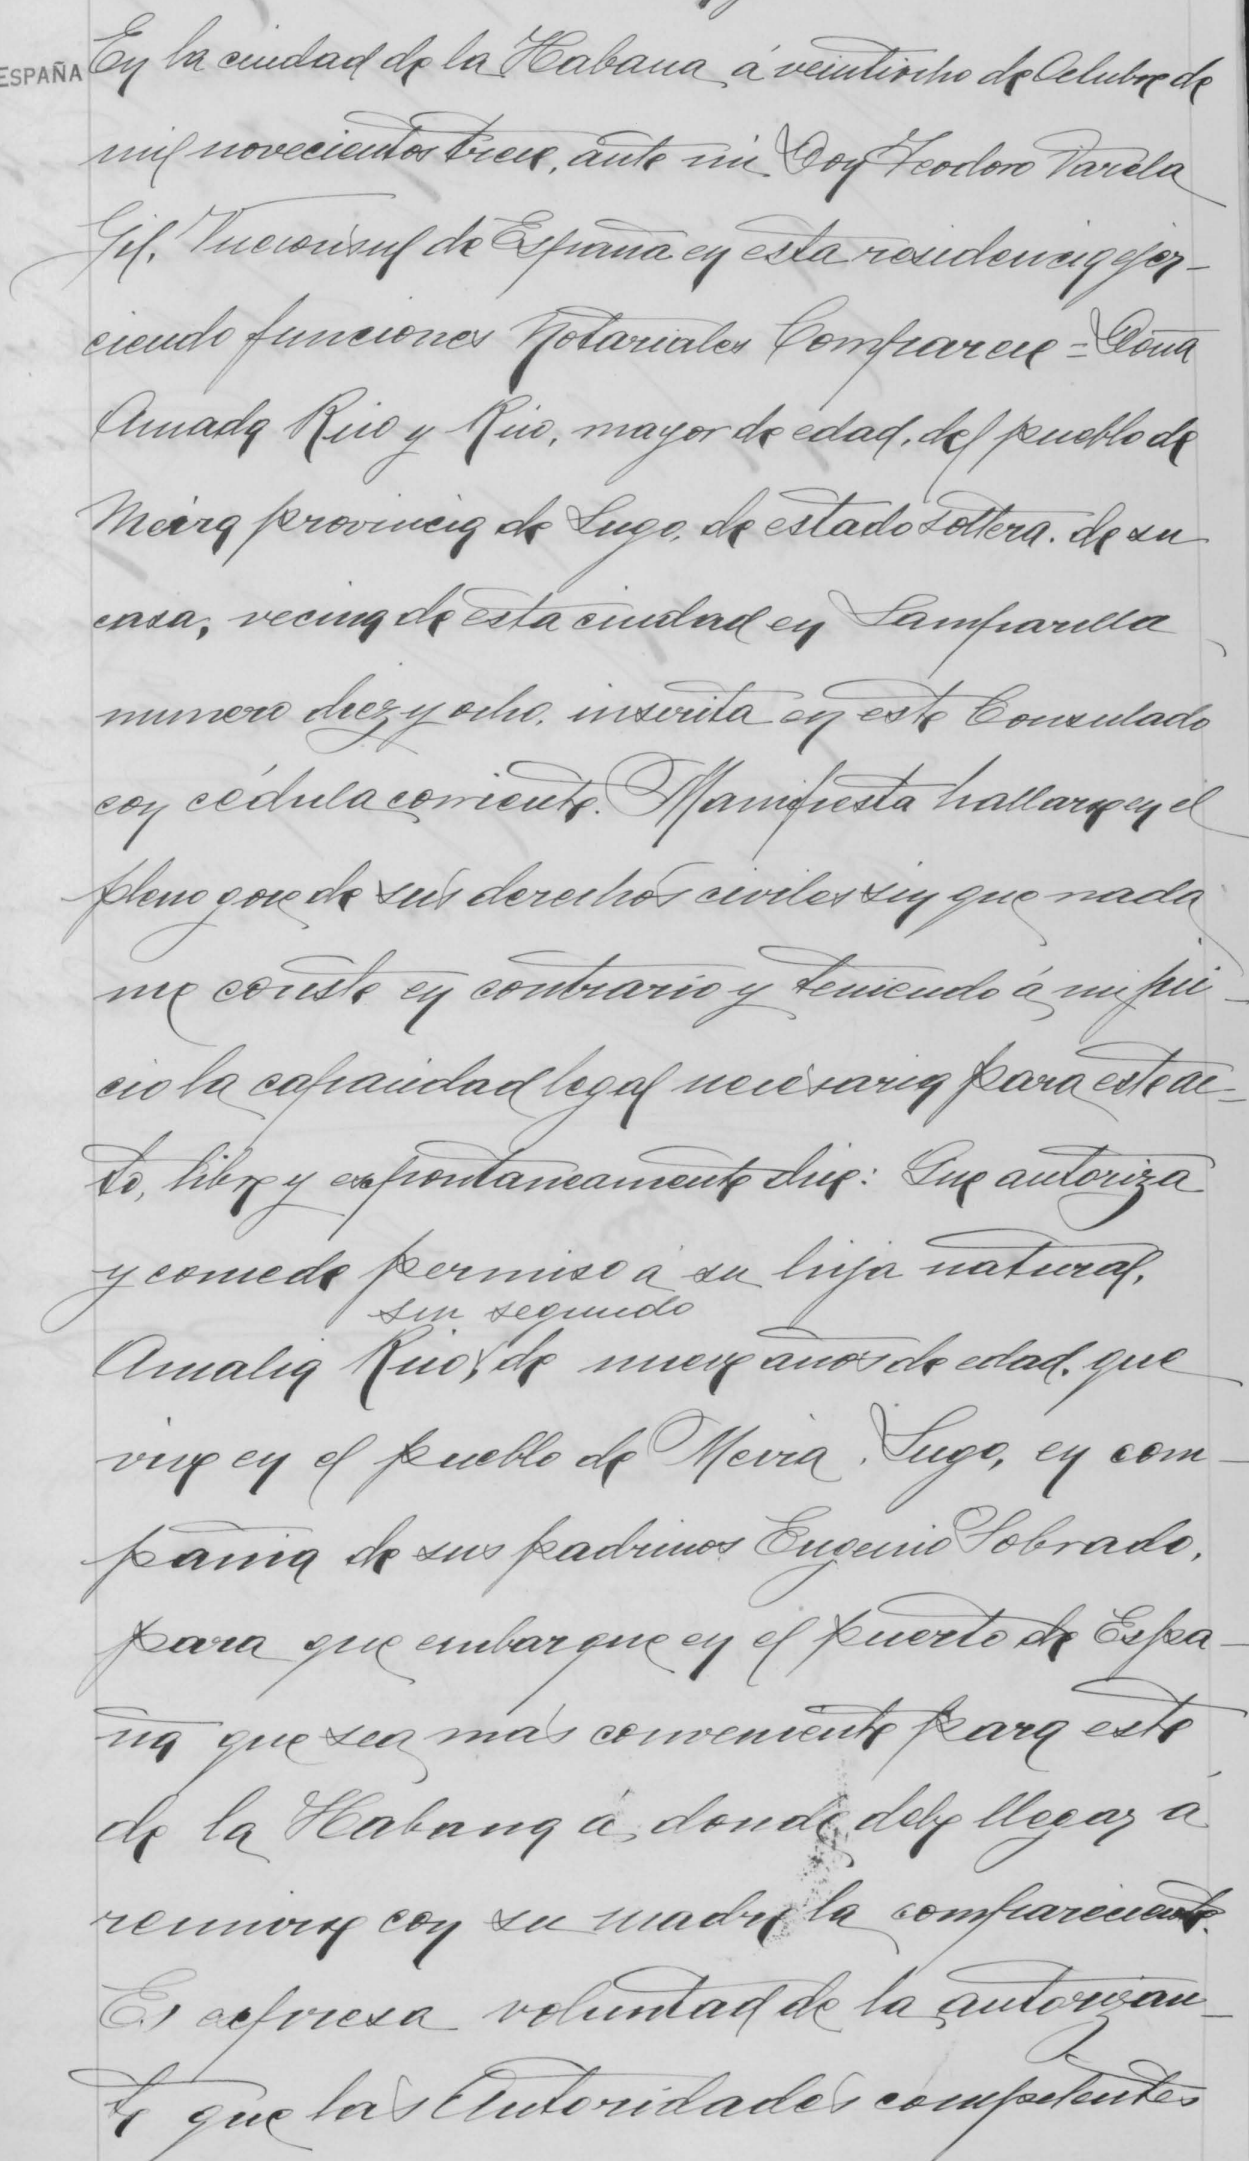 ESPAÑA
En la ciudad de la Habana á veintiocho de Octubre de
mil novecientos trece, ante mi Don Teodoro Varela
Gil, Vicecónsul de España en esta residencia ejer-
ciendo funciones Notariales Comparece = Doña
Amada Rico y Rico, mayor de edad, del pueblo de
Meira provincia de Lugo, de estado soltera, de su
casa, vecina de esta ciudad en Lamparilla
numero diez y ocho, inscrita en este Consulado
con cédula corriente. Manifiesta hallarse en el
pleno goce de sus derechos civiles sin que nada
me conste en contrario y teniendo á mi jui-
cio la capacidad legal necesaria para este ac-
to, libre y espontaneamente dice: Que autoriza
y concede permiso á su hija natural,
sin segundo
Amalia Rico, de nueve años de edad, que
vive en el pueblo de Meira, Lugo, en com-
pañia de sus padrinos Eugenio Sobrado,
para que embarque en el puerto de Espa-
ña que sea más conveniente para este
de la Habana á donde debe llegar á
reunirse con su madre la compareciente.
Es expresa voluntad de la autorizan-
te que las Autoridades competentes